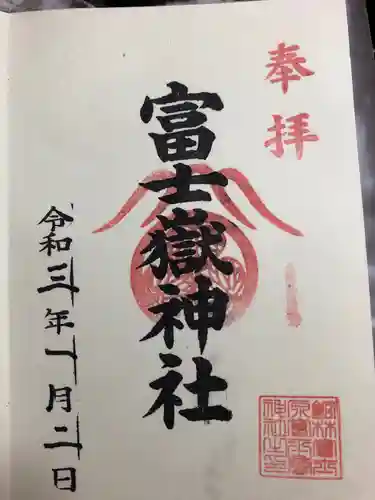 奉拝
富士嶽神社
令和三年一月二日